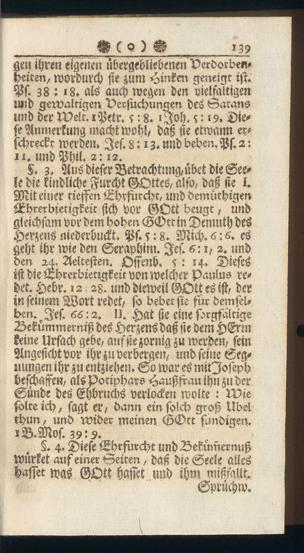 ❀ ( o ) ❀ 139
gen ihren eigenen übergebliebenen Verdorben-
heiten, wordurch sie zum Hinken geneigt ist.
Ps. 38: 18. als auch wegen den vielfältigen
und gewaltigen Versuchungen des Satans
und der Welt. 1 Petr. 5: 8. 1 Joh. 5: 19. Die-
se Anmerkung macht wohl, daß sie etwann er-
schreckt werden. Jes. 8: 13. und beben. Ps. 2:
11. und Phil. 2: 12.
§. 3. Aus dieser Betrachtung, übet die See-
le die kindliche Furcht GOttes, also, daß sie I.
Mit einer tieffen Ehrfurcht, und demüthigen
Ehrerbietigkeit sich vor GOtt beugt, und
gleichsam vor dem hohen GOtt in Demuth des
Herzens niederbuckt. Ps. 5: 8. Mich. 6: 6. es
geht ihr wie den Seraphim. Jes. 6: 1, 2. und
den 24. Aeltesten. Offenb. 5: 14. Dieses
ist die Ehrerbietigkeit von welcher Paulus re-
det. Hebr. 12: 28. und dieweil GOtt es ist, der
in seinem Wort redet, so bebet sie für demsel-
ben. Jes. 66: 2. II. Hat sie eine sorgfältige
Bekümmerniß des Herzens daß sie dem HErrn
keine Ursach gebe, auf sie zornig zu werden, sein
Angesicht vor ihr zu verbergen, und seine Seg-
nungen ihr zu entziehen. So war es mit Joseph
beschaffen, als Potiphars Haußfrau ihn zu der
Sünde des Ehbruchs verlocken wolte: Wie
solte ich, sagt er, dann ein solch groß Ubel
thun, und wider meinen GOtt sündigen.
1 B. Mos. 39: 9.
§. 4. Diese Ehrfurcht und Bekümernuß
würket auf einer Seiten, daß die Seele alles
hasset was GOtt hasset und ihm mißfallt.
Sprüchw.